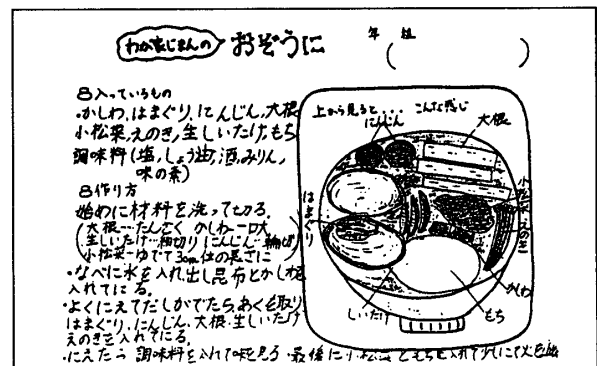 わが家じまんの おぞうに
年 組
( )
8入っているもの
・かしわ、はまぐり、にんじん、大根
小松菜、えのき、生しいたけ、もち
調味料(塩、しょう油、酒、みりん、
味の素)
8作り方
始めに材料を洗って切る。
(大根…たんざく かしわ…一口大
生しいたけ…細切り にんじん…輪切り
小松菜…ゆでて3cm位の長さに)
・なべに水を入れ出し昆布とかしわを
入れてにる。
・よくにえてだしがでたら、あくを取り
はまぐり、にんじん、大根、生しいたけ
えのきを入れてにる。
・にえたら 調味料を入れて味を見る・最後に小松菜ともちを入れて少しにて火を
上から見ると... こんな感じ
にんじん
大根
小松菜
えのき
はまぐり
かしわ
しいたけ
もち